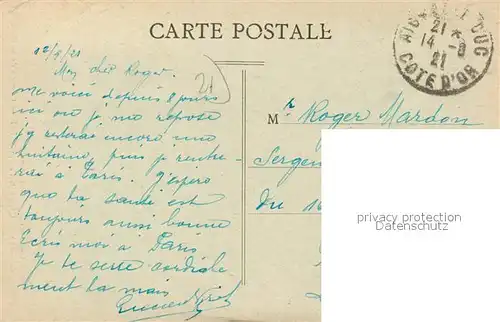 CARTE POSTALE
21 *
14 - 8
21
COTE D'OR
12/8/21
Mon cher Roger.
me voici depuis 8 jours
ici ou je me repose
j'y resterai encore une
huitaine, puis je rentre-
rai à Paris. j'espère
que ta santé est
toujours aussi bonne
Ecris moi à Paris
Je te serre cordiale
ment la main
21
Mr Roger Mardon
Sergen
du 16
privacy protection
Datenschutz